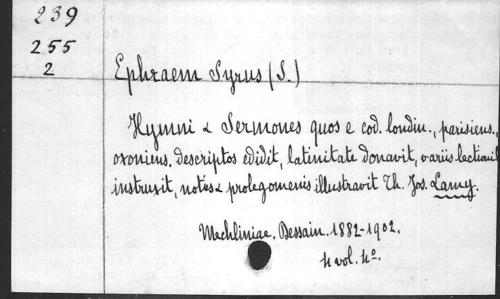 239
255
2
Ephraem Syrus (S.)
Hymni & Sermones quos e cod. londin., parisiens.,
oxoniens. descriptos edidit, latinitate donavit, variis lectionib
instruxit, notis & prolegomenis illustravit Th. Jos. Lamy.
Mechliniae. Dessain. 1882-1902.
4 vol. 4º.